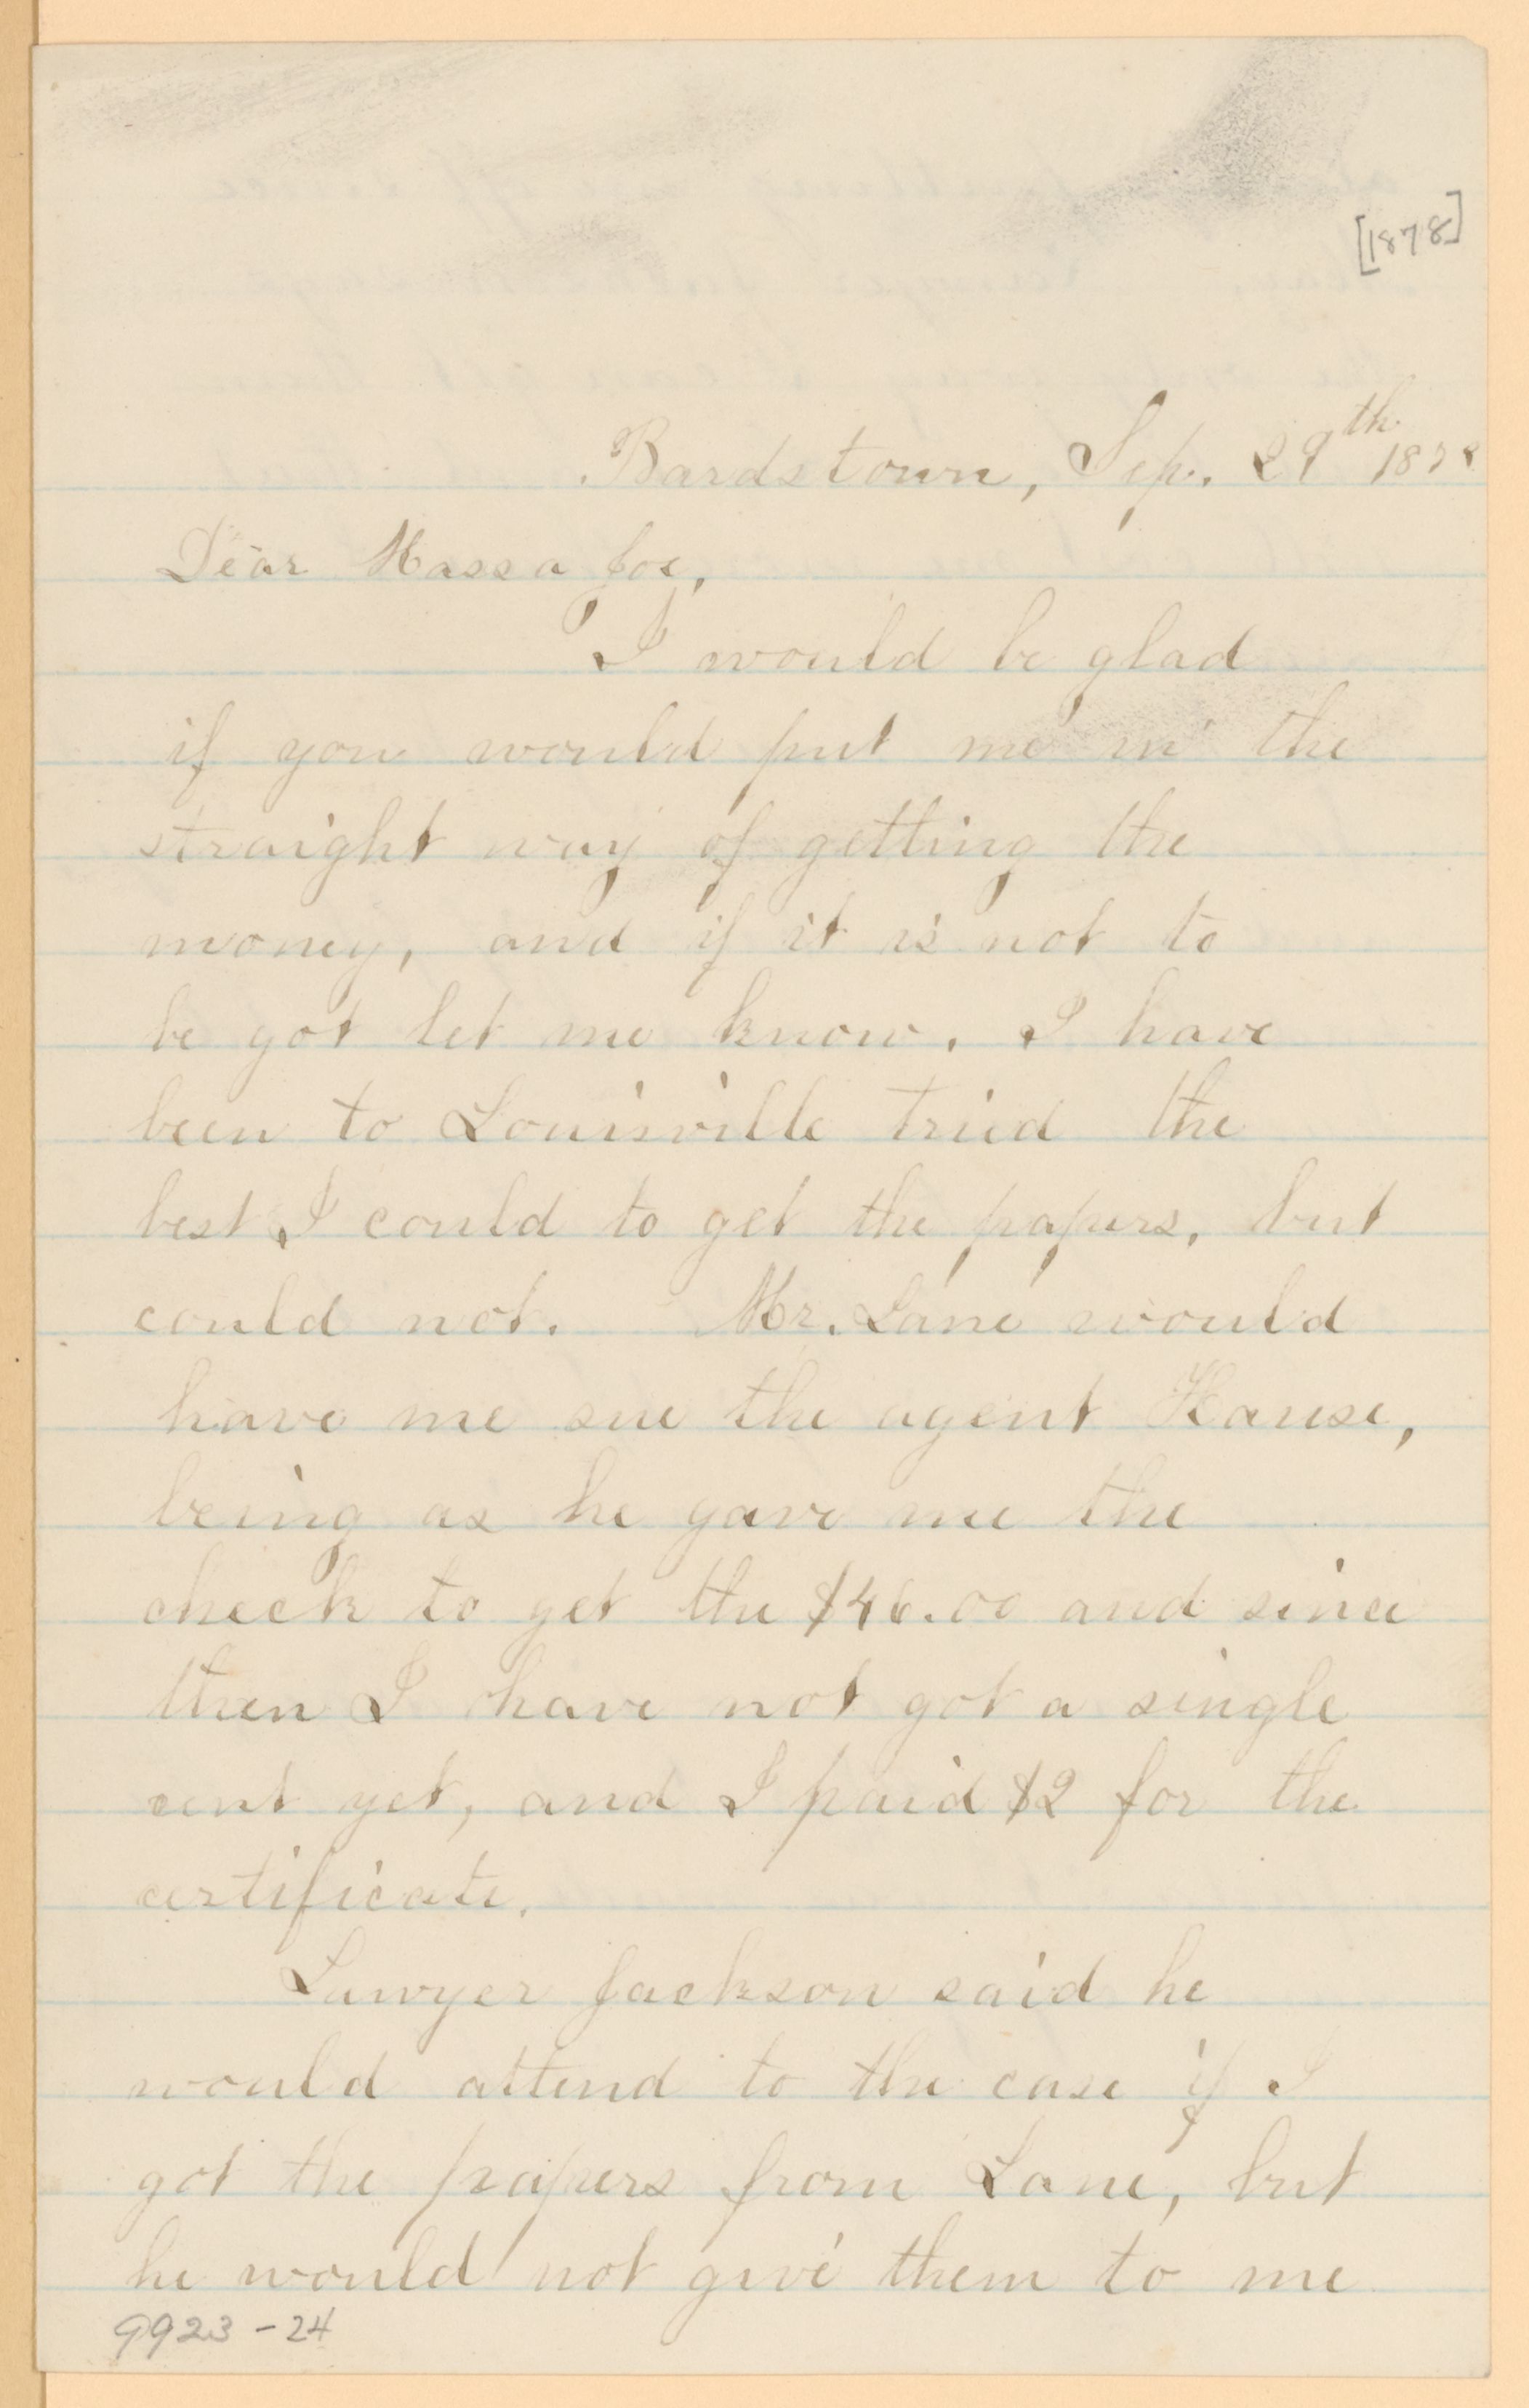 [1878]
Bardstown, Sep. 29th 1878
Dear Massa Joe,
I would be glad
if you would put me in the
straight way of getting the
money, and if it is not to
be got let me know. I have
been to Louisville tried the
best I could to get the papers, but
could not. Mr. Lane would
have me sue the agent Hause,
being as he gave me the
check to get the $46.00 and since
then I have not got a single
cent yet, and I paid $2 for the
certificate.
Lawyer Jackson said he
would attend to the case if I
got the papers from Lane, but
he would not give them to me
9923-24